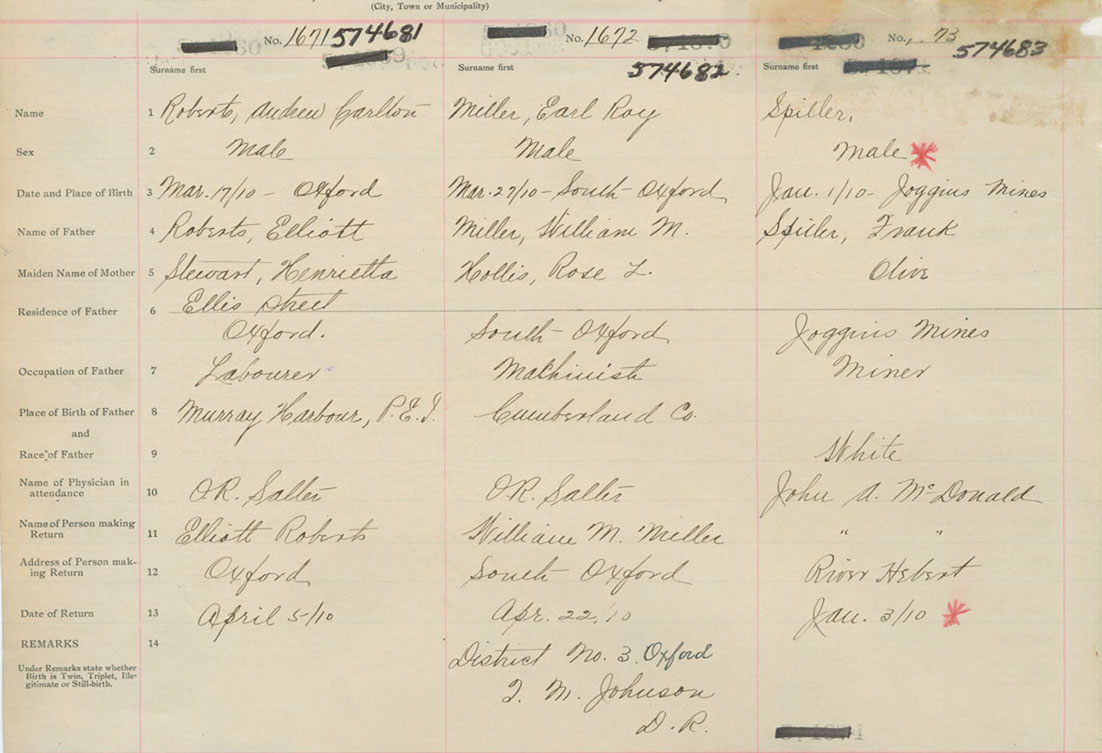 (City, Town or Municipality)
No. 1671 574681 No. 1672 No. 73 574683
Surname first Surname first 574682. Surname first
Name 1 Roberts, Andrew Carlton Miller, Earl Roy Spiller,
Sex 2 Male Male Male
Date and Place of Birth 3 Mar. 17/10 - Oxford Mar. 27/10 - South Oxford Jan. 1/10 - Joggins Mines
Name of Father 4 Roberts, Elliott Miller, William M. Spiller, Frank
Maiden Name of Mother 5 Stewart, Henrietta Hollis, Rose L. Olive
Residence of Father 6 Ellis Street
Oxford. South Oxford Joggins Mines
Occupation of Father 7 Labourer Machinist Miner
Place of Birth of Father 8 Murray Harbour, P.E.I. Cumberland Co.
and
Race of Father 9 White
Name of Physician in
attendance 10 O.R. Salter O.R. Salter John A. McDonald
Name of Person making
Return 11 Elliott Roberts William M. Miller " "
Address of Person mak-
ing Return 12 Oxford South Oxford River Hebert
Date of Return 13 April 5/10 Apr. 22/10 Jan. 3/10
REMARKS 14
District No. 3. Oxford
Under Remarks state whether
Birth is Twin, Triplet, Ille-
gitimate or Still-birth.
T. M. Johnson
D. R.